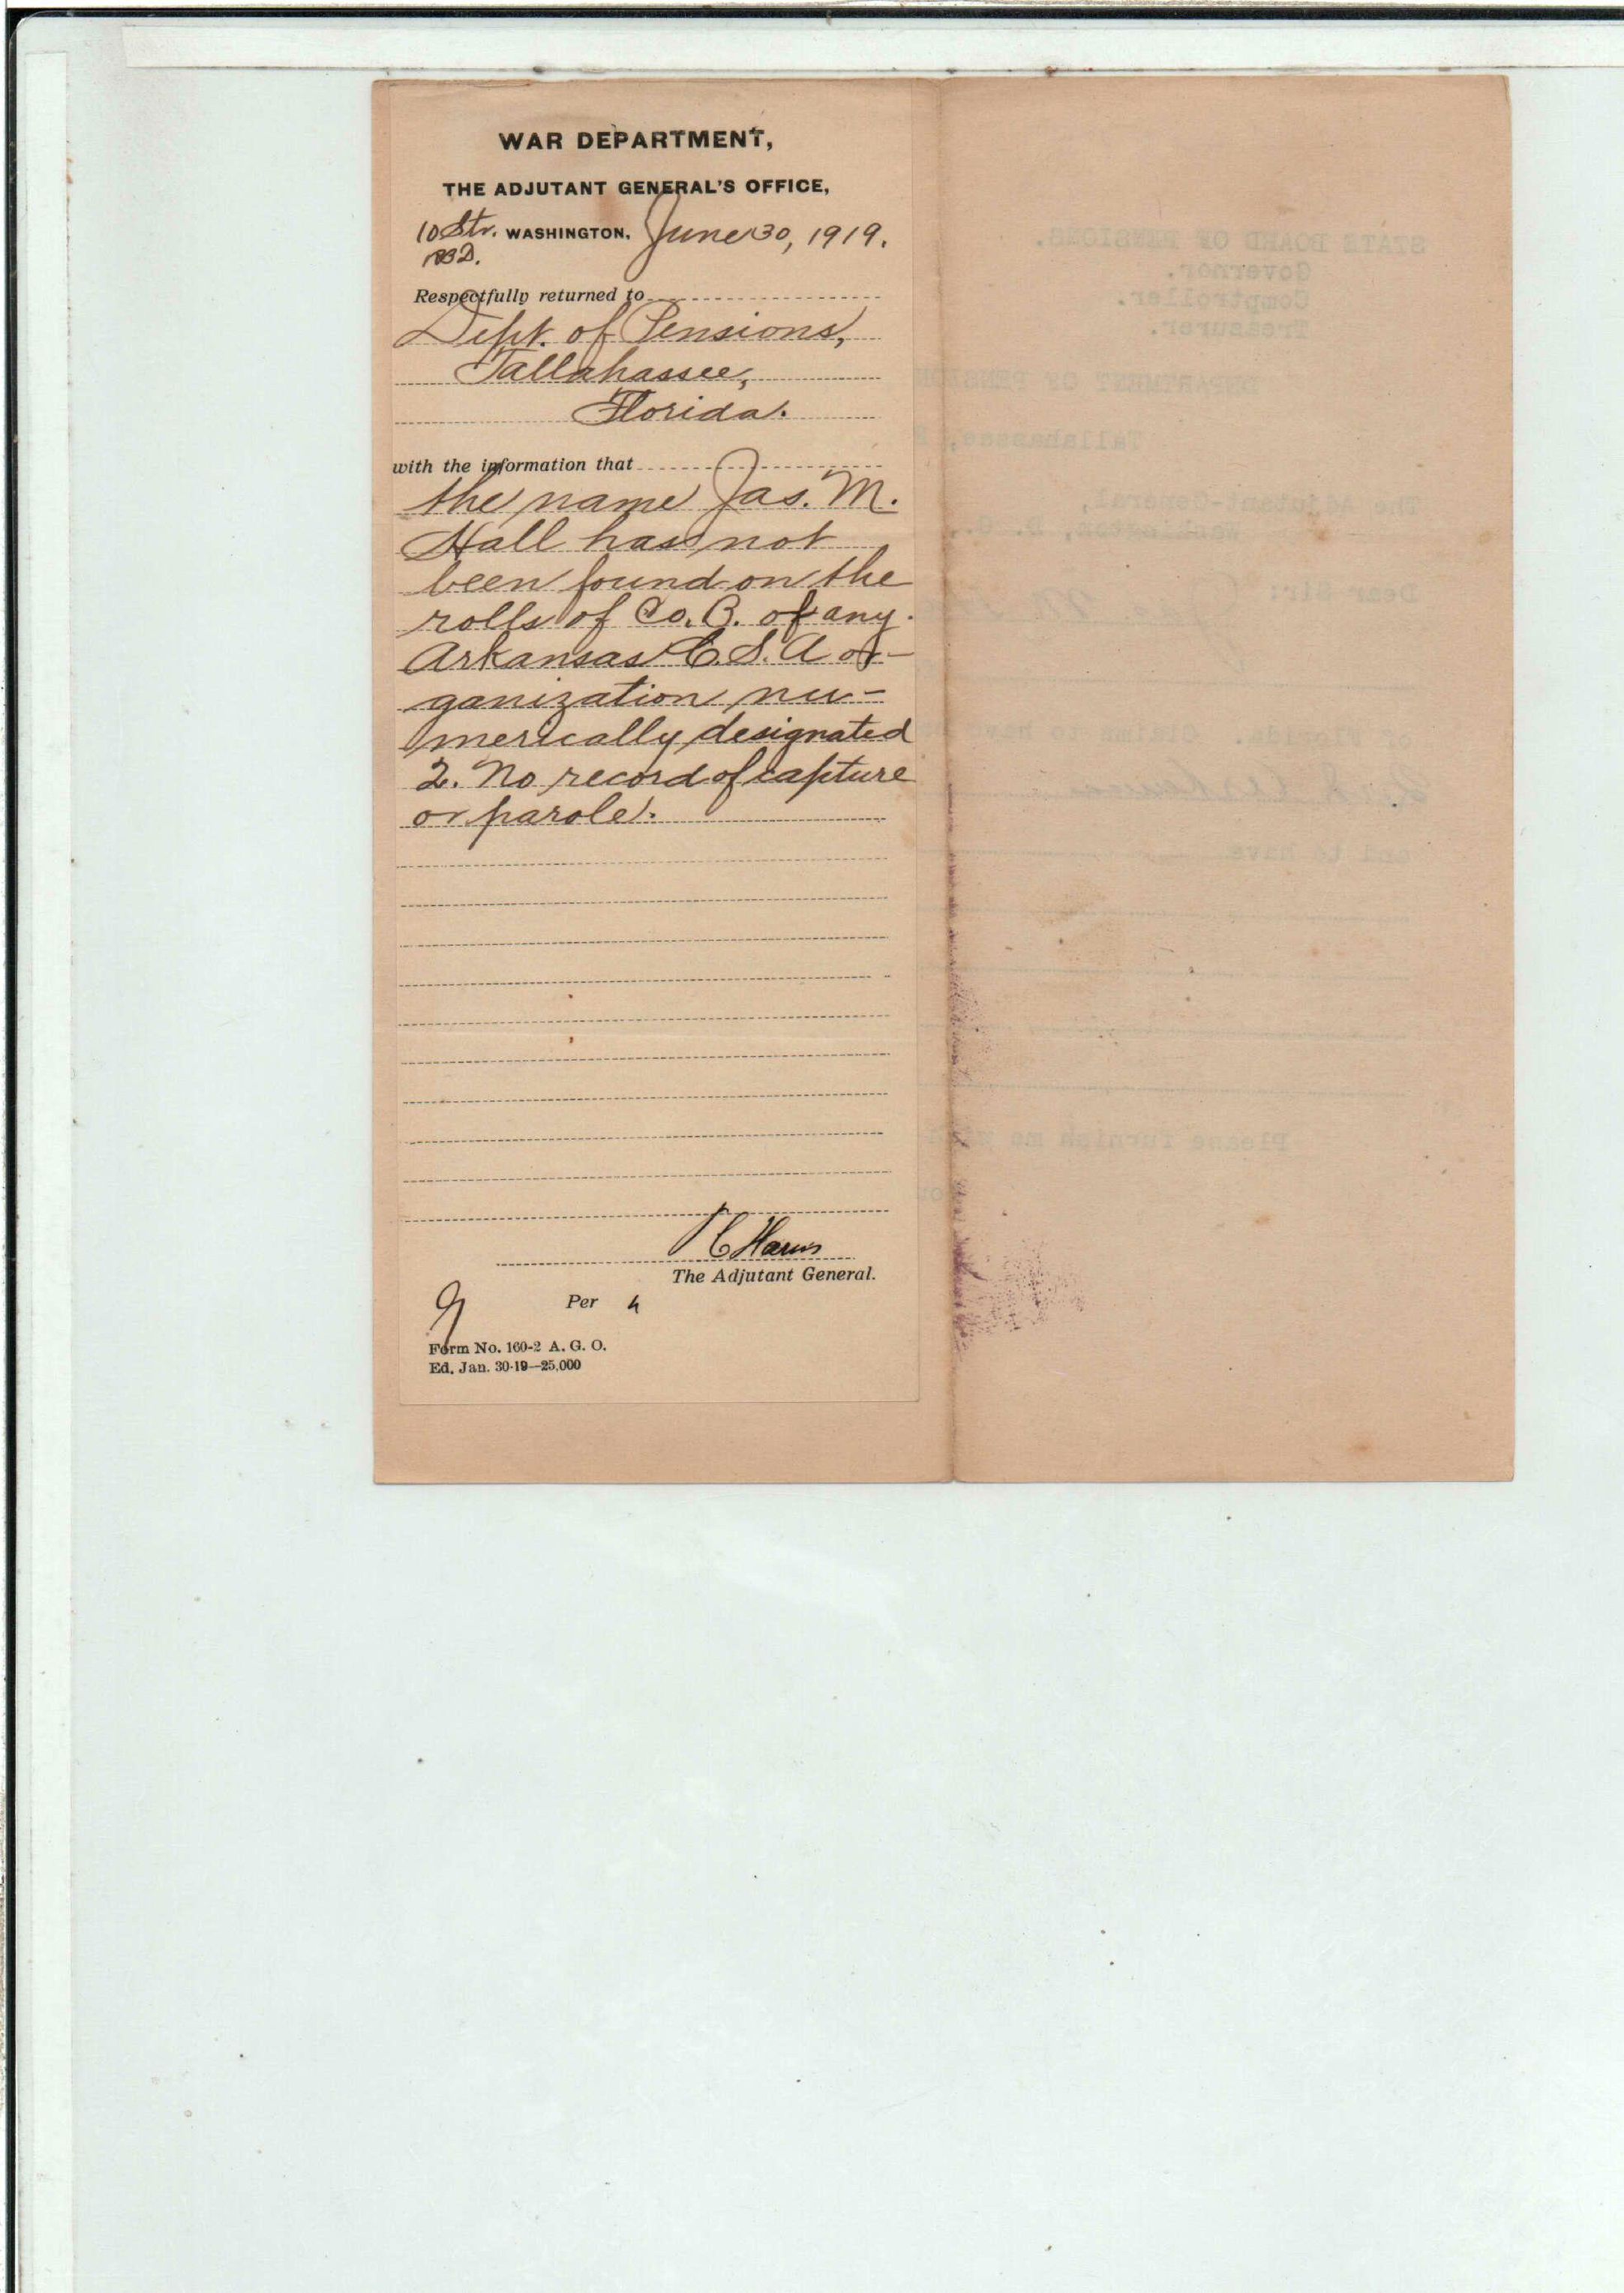 WAR DEPARTMENT,
THE ADJUTANT GENERAL'S OFFICE,
10 Str. WASHINGTON, June 30, 1919.
Respectfully returned to
Dept. of Pensions,
Tallahassee,
Florida.
with the information that
the name Jas. M.
Hall has not
been found on the
rolls of Co. B. of any
Arkansas C.S.A or-
ganization nu-
merically designated
2. No record of capture
or parole.
P C Harris
The Adjutant General.
Per
Form No. 160-2 A. G. O.
Ed. Jan. 30-19—25,000
STATE BOARD OF PENSIONS.
Governor.
Comptroller.
Treasurer.
DEPARTMENT OF PENSION
Tallahassee,
The Adjutant-General,
Washington, D. C.
Dear Sir:
of Florida. Claims to have
and to have
Please furnish me